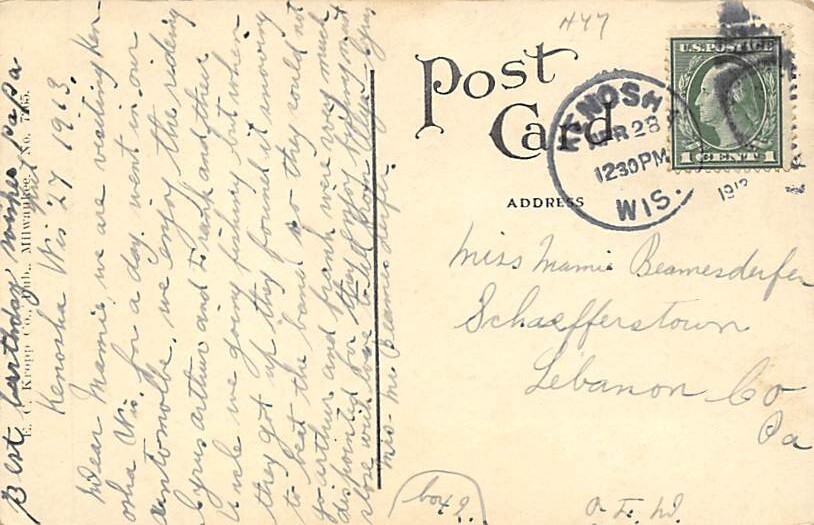 Best barthday wishes papa
E. C. Kropp Co., Pub., Milwaukee. No. 7165.
Kenosha Wis 27 1913.
Dear Mamie, we are visiting Ken-
osha Wis. for a day. went in our
automolbe. we enjoy the riding
Cyrus arthur and Frank and their
Uncle we going fishing but when
they got up they found it snowing
to beat the band so they could not
go arthur and frank were very much
dispointed for they enjoy fishing must
close with love to all from Cyrus
Mrs. Beamesderfer.
447
Post
Card
U.S. POSTAGE
1 CENT 1
KENOSHA
APR 28
12 30 PM
WIS.
ADDRESS
Miss Mamie Beamesderfer
Schaefferstown
Lebanon Co
Pa
box 9